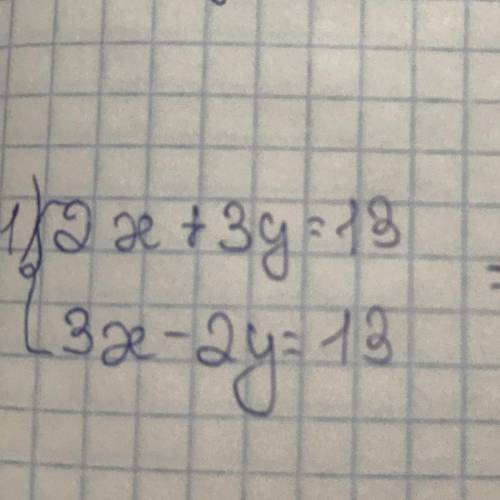 1) 2x + 3y = 13
3x - 2y = 13
=